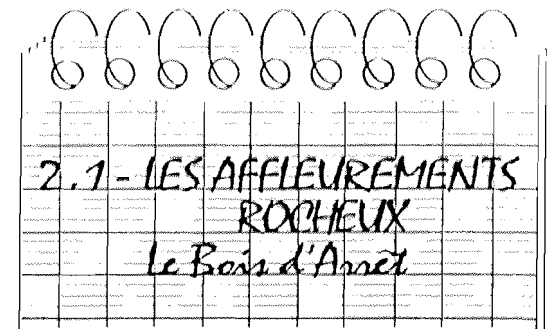 2.1 - LES AFFLEUREMENTS
ROCHEUX
Le Bois d'Arrêt